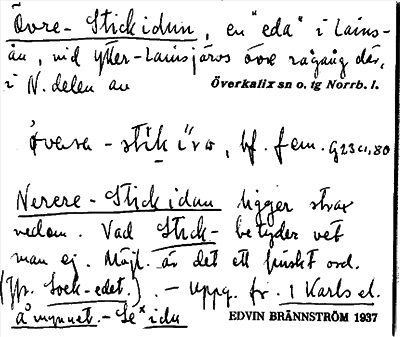 Övre-Stickidun, en "eda" i Lains-
ån, vid Ytter-Lainsjärvs övre rågång där,
i N. delen av Överkalix sn o. tg Norrb. l.
övera-stik ïra, bf. fem.
Nerere-Stickidan ligger strax
nedom. Vad Stick- betyder vet
man ej. Möjl. är det ett finskt ord.
(Jfr. Sock-edet.). - Uppg. fr. 1 Karls el.
åmynnet.-Se idu EDVIN BRÄNNSTRÖM 1937